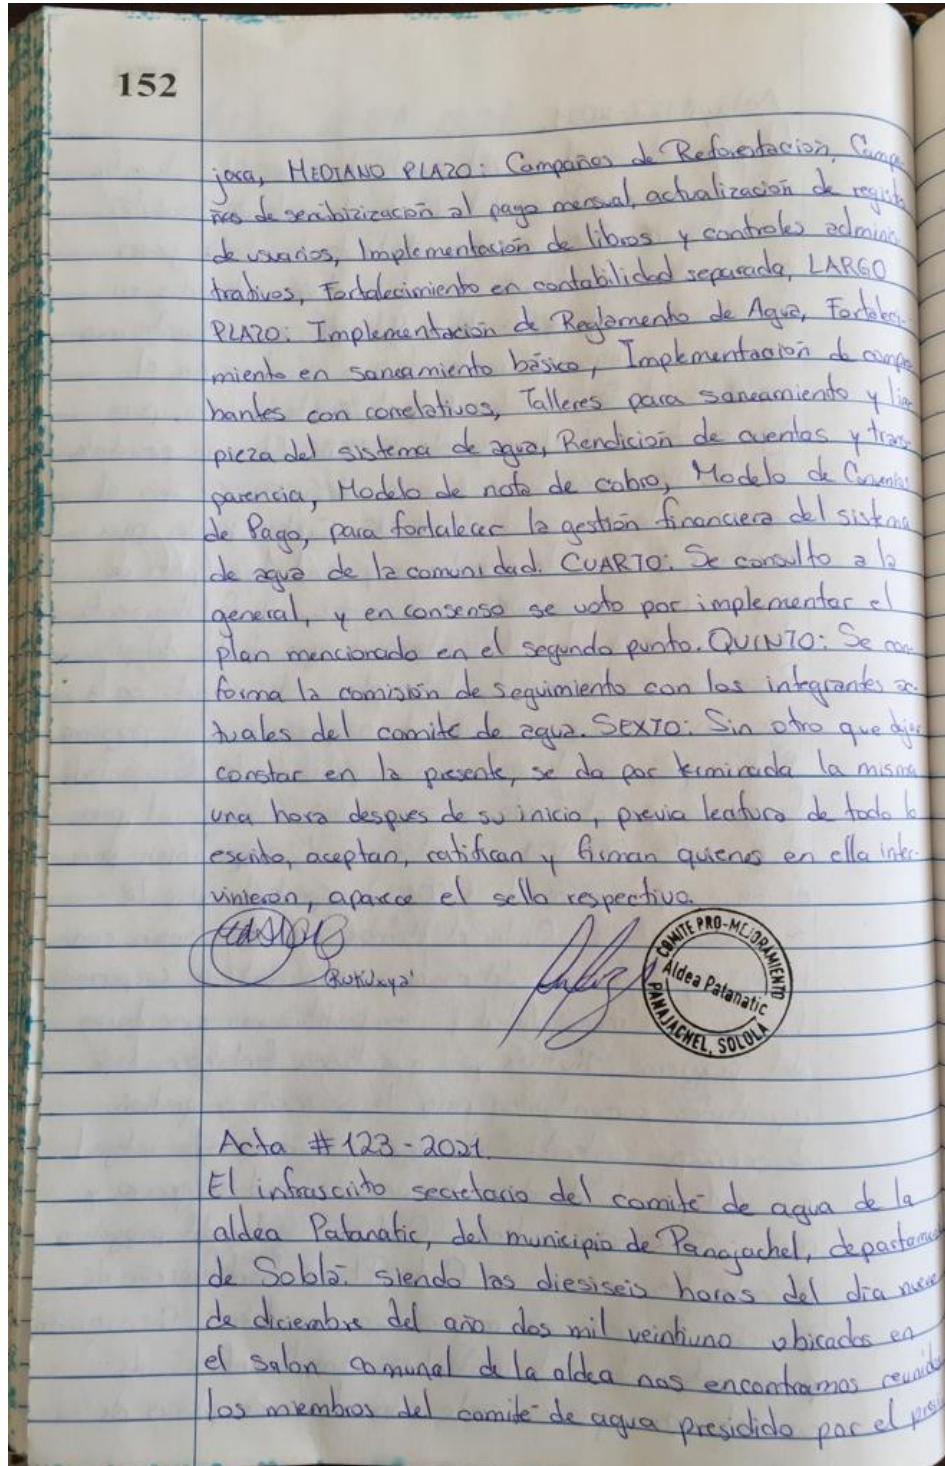 152
jora, MEDIANO PLAZO: Campañas de Reforestación, Campa-
ñas de sencibizización al pago mensual, actualización de registro
de usuarios, Implementación de libros y controles adminis
trativos, Fortalecimiento en contabilidad separada, LARGO
PLAZO: Implementación de Reglamento de Agua, Fortaleci-
miento en saneamiento básico, Implementación de compro
bantes con correlativos, Talleres para saneamiento y lim
pieza del sistema de agua, Rendición de cuentas y trans-
parencia, Modelo de nota de cobro, Modelo de Convenios
de Pago, para fortalecer la gestión financiera del sistema
de agua de la comunidad. CUARTO: Se consulto a la
general, y en consenso se voto por implementar el
plan mencionado en el segundo punto. QUINTO: Se con
forma la comisión de seguimiento con los integrantes ac
tuales del comité de agua. SEXTO: Sin otro que dejar
constar en la presente, se da por terminada la misma
una hora despues de su inicio, previa leatura de todo lo
escrito, aceptan, ratifican y firman quienes en ella inter-
vinieron, aparece el sello respectivo.
COMITE PRO-MEJORAMIENTO
Aldea Patanatic
PANAJACHEL, SOLOLA
Acta #123-2021.
El infrascrito secretario del comité de agua de la
aldea Patanatic, del municipio de Panajachel, departamento
de Sololá. siendo las diesiseis horas del día nueve
de diciembre del año dos mil veintiuno ubicados en
el salon comunal de la aldea nos encontramos reunidos
los miembros del comité de agua presidido por el presi